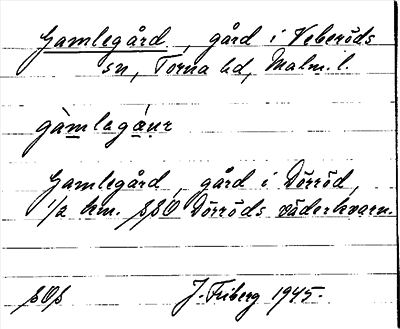 Gamlegård, gård i Veberöds
sn, Torna hd, Malm. l.
Gamlegård, gård i Dörröd,
1/2 km. SSO Dörröds väderkvarn.
J. Friberg 1945.